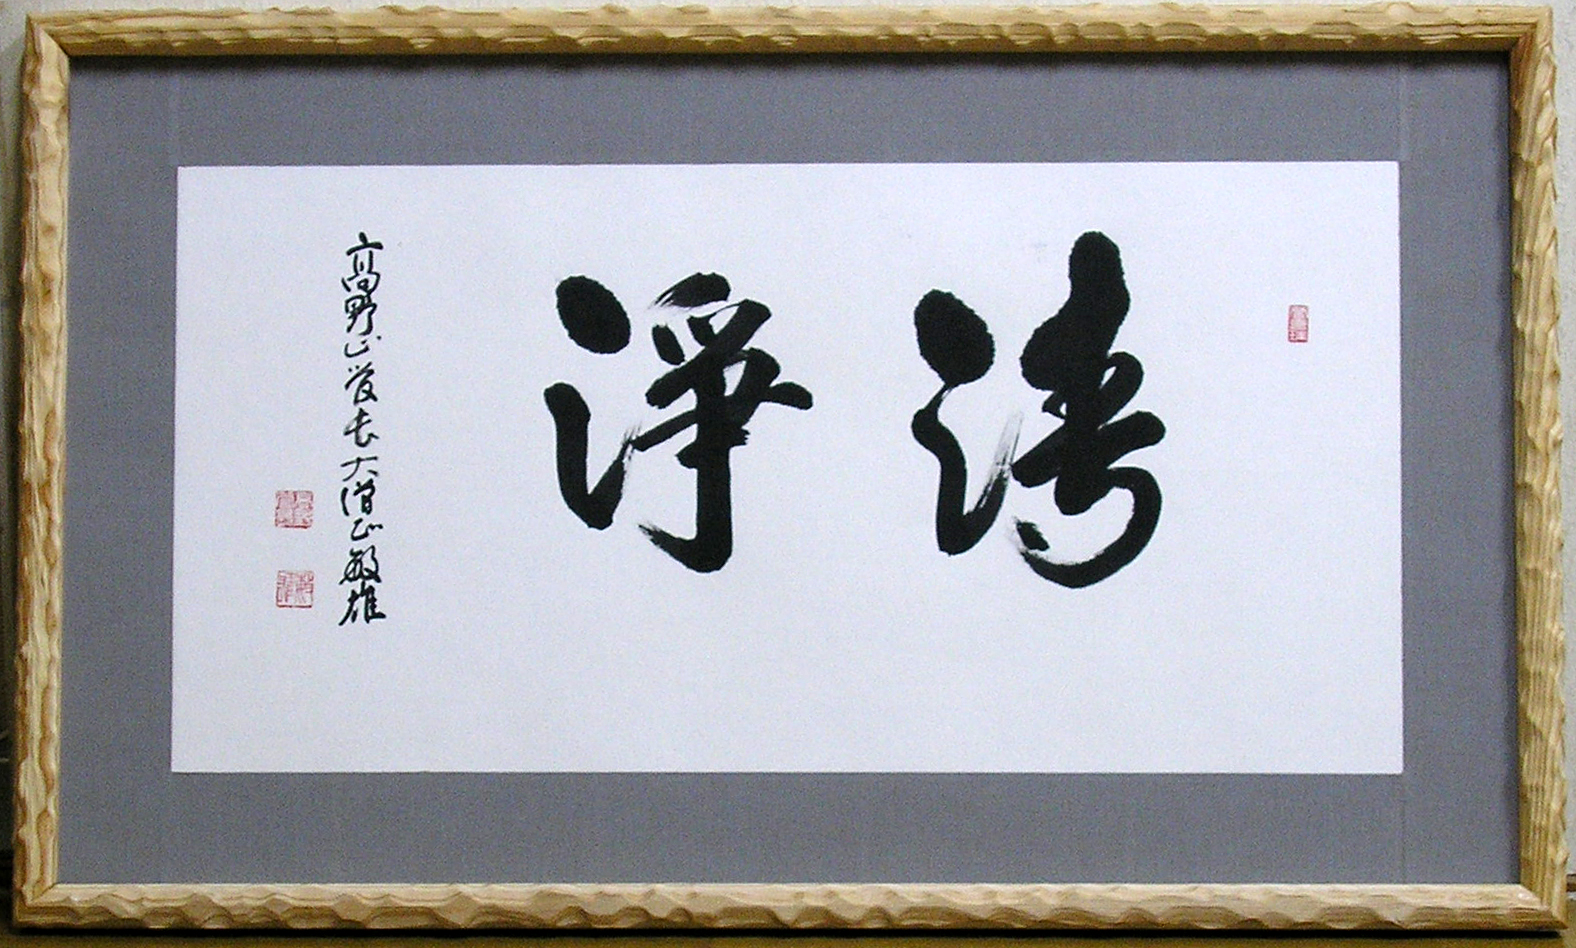 清淨
高野山管長大僧正敏雄